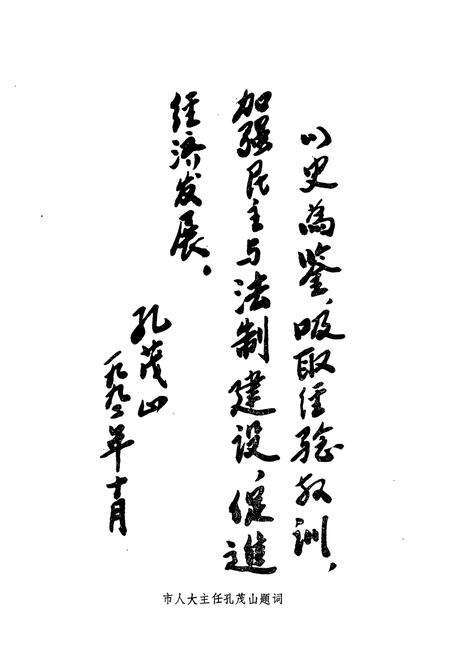 以史為鉴，吸取经验教训，
加强民主与法制建设，促進
经济发展。
孔茂山
一九九二年十月
市人大主任孔茂山题词